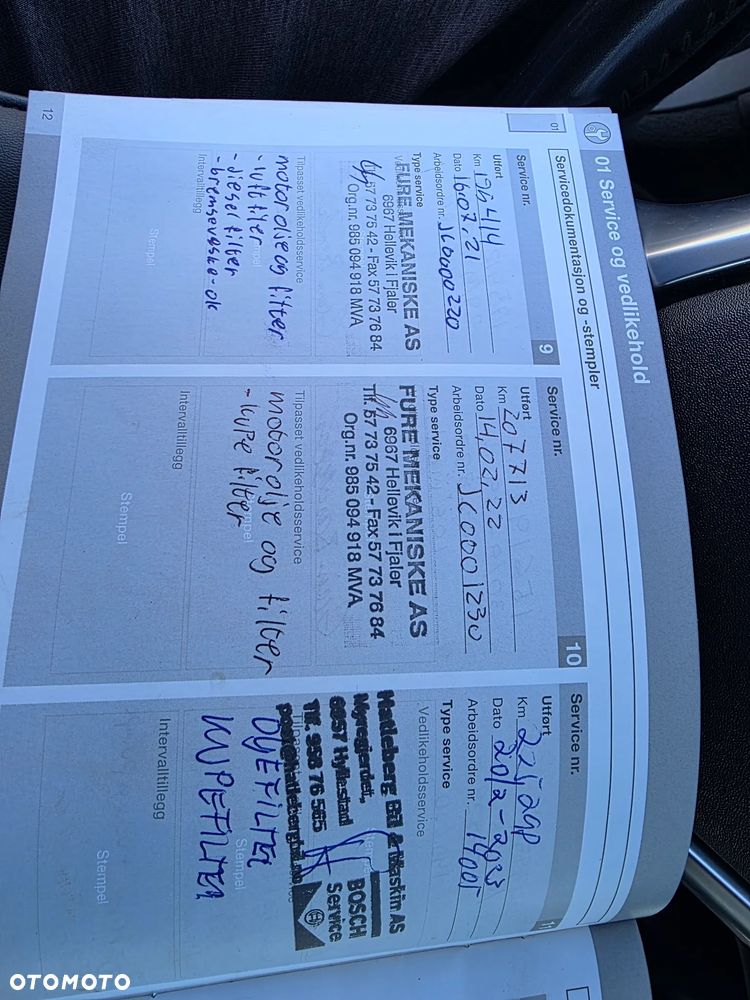 01 Service og vedlikehold
Servicedokumentasjon og -stempler
01
Service nr.
9
Utført
Km 196414
Dato 16.07.21
Arbeidsordre nr. JC0000220
Type service
FURE MEKANISKE AS
6967 Hellevik i Fjaler
Tlf. 57 73 75 42 - Fax 57 73 76 84
Org.nr. 985 094 918 MVA
Tilpasset vedlikeholdsservice
motorolje og filter
- luftfilter
- diesel filter
- bremsevæske - ok
Intervalltillegg
Stempel
Service nr.
10
Utført
Km 207713
Dato 14.02.22
Arbeidsordre nr. JC0001230
Type service
FURE MEKANISKE AS
6967 Hellevik i Fjaler
Tlf. 57 73 75 42 - Fax 57 73 76 84
Org.nr. 985 094 918 MVA
Tilpasset vedlikeholdsservice
motorolje og filter
- kupe filter
Stempel
Intervalltillegg
Stempel
Service nr.
11
Utført
Km
Dato 20/2-2023
Arbeidsordre nr. 14005
Type service
Vedlikeholdsservice
Hatleberg Bil & Maskin AS
Myregjerdet,
6957 Hyllestad
Tlf. 958 76 565
post@hatlebergbil.no
BOSCH
Service
OLJEFILTER
KUPEFILTER
Stempel
Intervalltillegg
Stempel
12
OTOMOTO